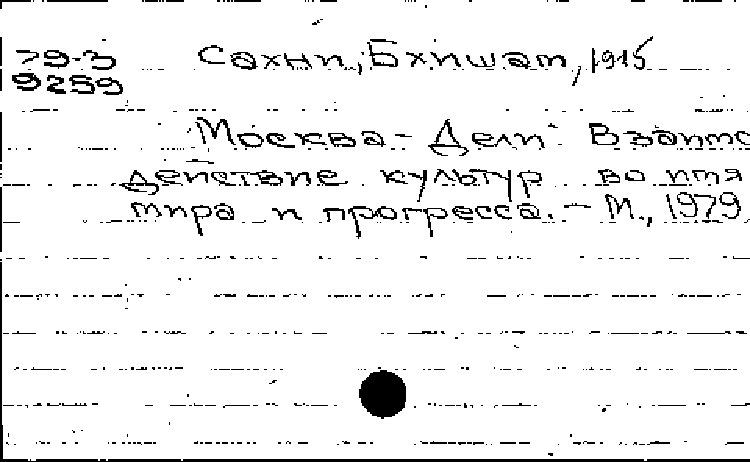 79-3 Сахни, Бхишам, 1915
9259
Москва - Дели. Взаимо
действие культур во имя
мира и прогресса. - М., 1979